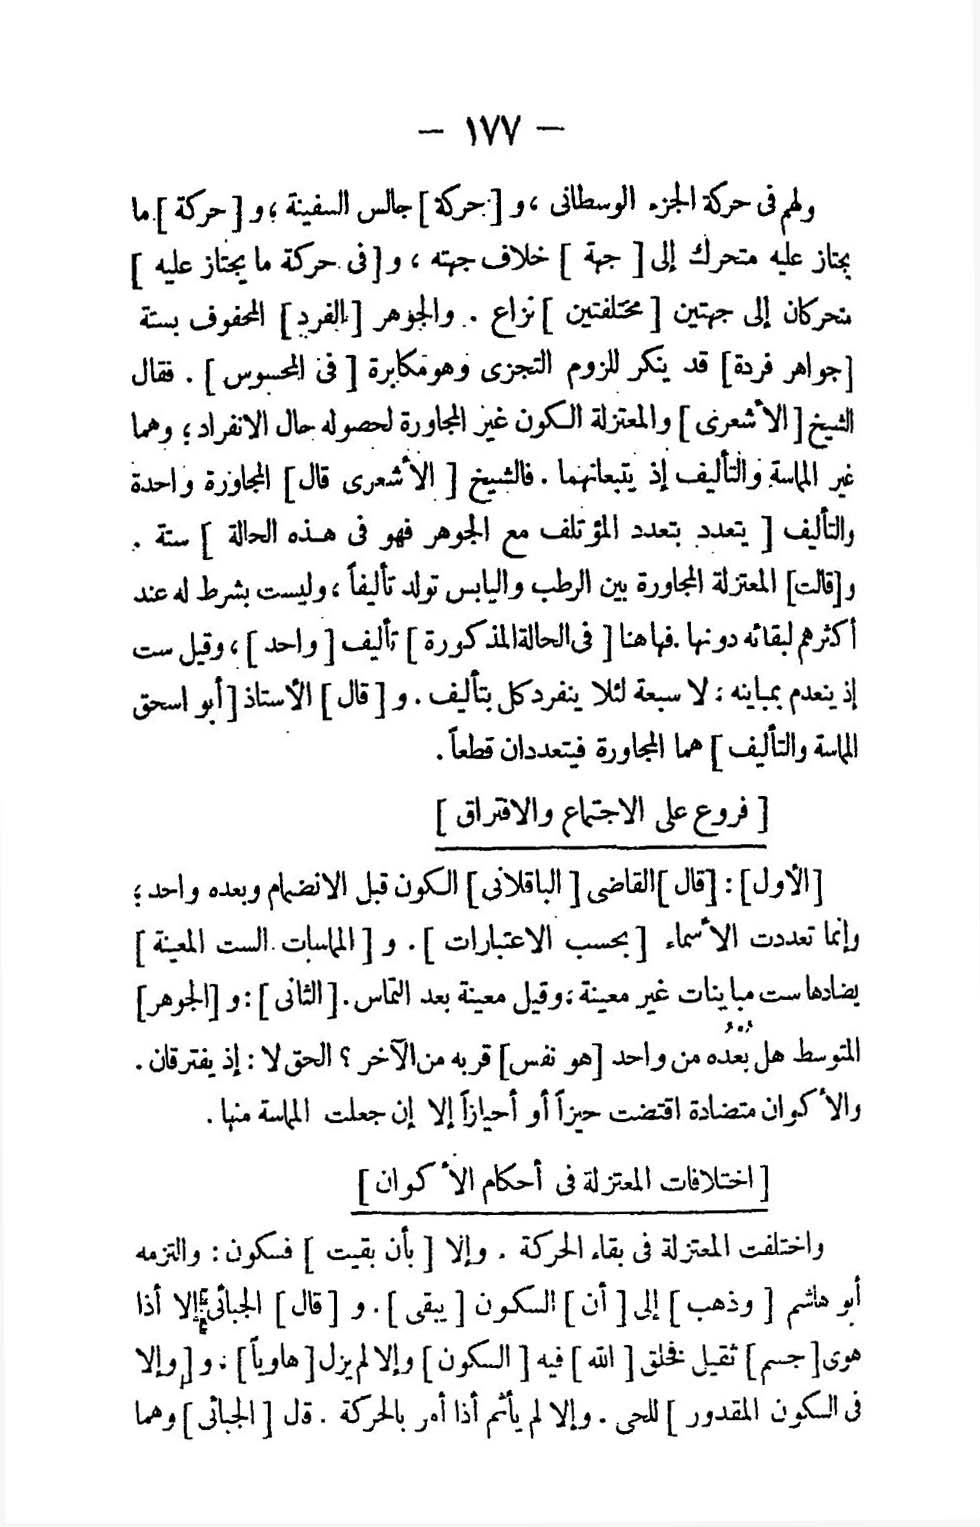 — ١٧٧ —
ولهم فى حركة الجزء الوسطانى ، و [ حركة ] جالس السفينة ؛ و [ حركة ] ما
يجتاز عليه متحرك إلى [ جهة ] خلاف جهته ، و [ فى حركة ما يجتاز عليه ]
متحركان إلى جهتين [ مختلفتين ] نزاع . والجوهر [ الفرد ] المحفوف بستة
[ جواهر فردة ] قد ينكر للزوم التجزى وهو مكابرة [ فى المحسوس ] . فقال
الشيخ [ الأشعرى ] والمعتزلة الكون غير المجاورة لحصوله حال الانفراد ؛ وهما
غير المماسة والتأليف إذ يتبعانهما . فالشيخ [ الأشعرى قال ] المجاورة واحدة
والتأليف [ يتعدد بتعدد المؤتلف مع الجوهر فهو فى هذه الحالة ] ستة .
و [قالت] المعتزلة المجاورة بين الرطب واليابس تولد تأليفاً ، وليست بشرط له عند
أكثرهم لبقائه دونها . فهاهنا [ فى الحالة المذكورة ] تأليف [ واحد ] ، وقيل ست
إذ ينعدم بمباينه ؛ لا سبعة لئلا ينفرد كل بتأليف . و [ قال ] الأستاذ [ أبو اسحق
المماسة والتأليف ] هما المجاورة فيتعددان قطعاً .
[ فروع على الاجتماع والافتراق ]
[ الأول ] : [ قال ] القاضى [ الباقلانى ] الكون قبل الانضمام وبعده واحد ؛
وإنما تعددت الأسماء [ بحسب الاعتبارات ] . و [ المماسات الست المعينة ]
يضادها ست مباينات غير معينة ؛ وقيل معينة بعد التماس . [ الثانى ] : و [ الجوهر ]
المتوسط هل بُعْدُه من واحد [ هو نفس ] قربه من الآخر ؟ الحق لا : إذ يفترقان .
والأكوان متضادة اقتضت حيزاً أو أحيازاً إلا إن جعلت المماسة منها .
[ اختلافات المعتزلة فى أحكام الأكوان ]
واختلفت المعتزلة فى بقاء الحركة . وإلا [ بأن بقيت ] فسكون : والتزمه
أبو هاشم [ وذهب ] إلى [ أن ] السكون [ يبقى ] . و [ قال ] الجبائى إلا أذا
هوى [ جسم ] ثقيل فخلق [ الله ] فيه [ السكون ] وإلا لم يزل [ هاوياً ] ؛ و [ وإلا
فى السكون المقدور ] للحى . وإلا لم يأثم أذا أمر بالحركة . قل [ الجبائى ] وهما